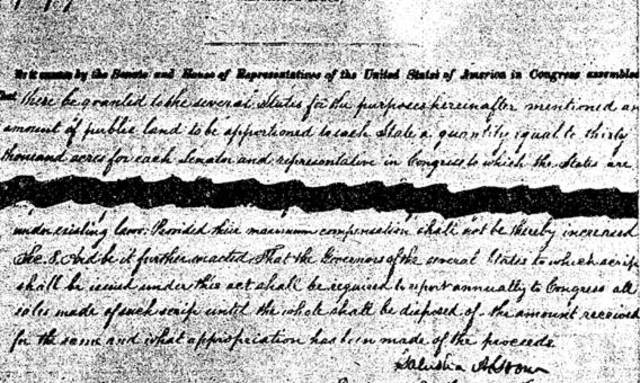 Be it enacted by the Senate and House of Representatives of the United States of America in Congress assembled
That there be granted to the several States for the purposes hereinafter mentioned an
amount of public land to be apportioned to each State a quantity equal to thirty
thousand acres for each Senator and representative in Congress to which the States are
under existing laws: Provided their maximum compensation shall not be thereby increased
Sec. 8. And be it further enacted, That the Governors of the several States to which scrip
shall be issued under this act shall be required to report annually to Congress all
sales made of such scrip until the whole shall be disposed of the amount received
for the same and what appropriation has been made of the proceeds.
Galusha A Grow